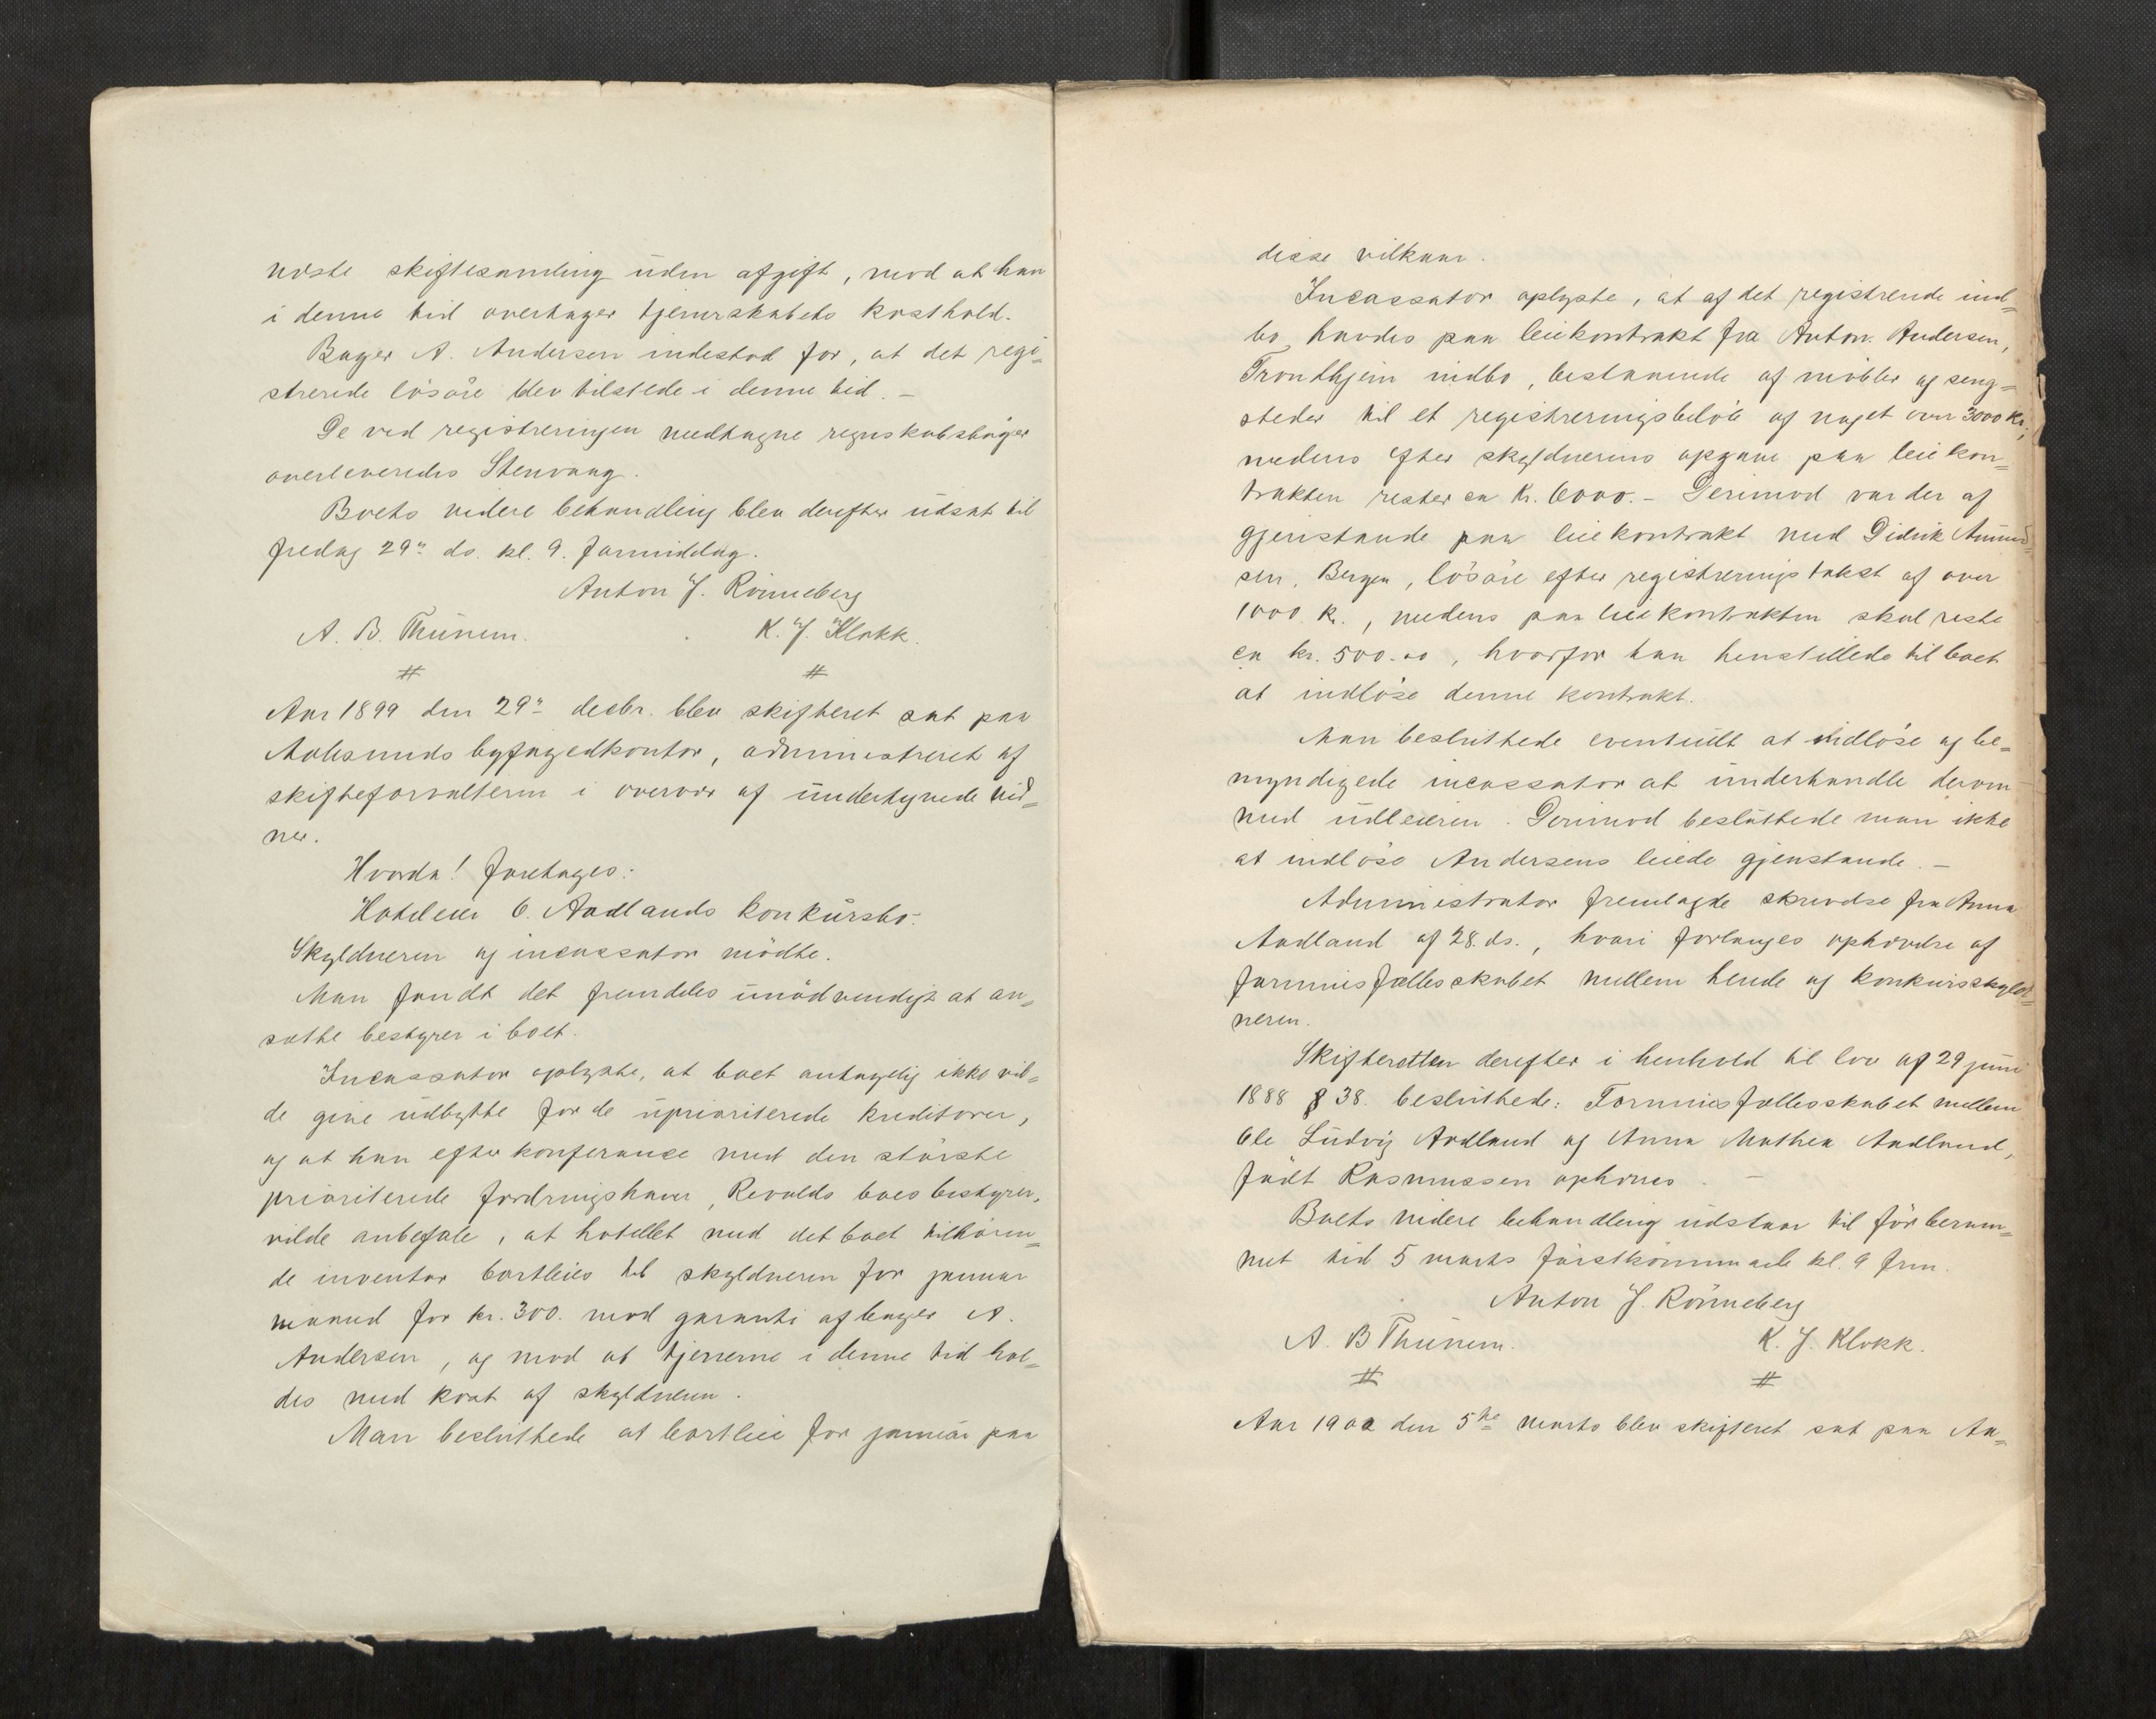 næste skiftesamling uden afgift, mod at han
i denne tid overtager tjenerskabets kosthold.
Bager A. Andersen indestod for, at det regi=
strerede lösöre blev tilstede i denne tid. –
De ved registreringen medtagne regnskabsböger
overleveredes Stenvaag.
Boets videre behandling blev derefter udsat til
fredag 29de ds. kl. 9. formiddag.
Anton J. Rönneberg
A. B. Thunem. K. J. Klokk.
# #
Aar 1899 den 29de decbr. blev skifteret sat paa
Aalesunds byfogedkontor, administreret af
skifteforvalteren i overvær af undertegnede vid=
ner.
Hvorda! foretages:
Hoteleier O. Aadlands konkursbo.
Skyldneren og incassator mödte.
Man fandt det fremdeles unödvendigt at an=
sætte bestyrer i boet.
Incassator oplyste, at boet antagelig ikke vil=
de give udbytte for de upriariterede kreditorer,
og at han efter konferance med den störste
priariterede fordringshaver, Revolds boes bestyrer,
vilde anbefale, at hotellet med det boet tilhören=
de inventar bortleies til skyldneren for januar
maaned for kr. 300. mod garanti af bager A.
Andersen, og mod at tjenerne i denne tid hol=
des med kost af skyldneren.
Man besluttede at bortleie for januar paa
disse vilkaar.
Incassator oplyste, at af det registrerede ind=
bo havdes paa leiekontrakt fra Anton. Andersen,
Trondhjem indbo, bestaaende af möbler og seng=
steder til et registreringsbelöb af noget over 3000 kr.,
medens efter skyldnerens opgave paa leiekon=
trakten rester ca kr. 6000. – Derimod var der af
gjenstande paa leiekontrakt med Didrik Amund=
sen, Bergen, lösöre efter registrerings takst af over
1000 kr., medens paa leiekontrakten skal reste
ca kr. 500.00, hvorfor han henstillede til boet
at indlöse denne kontrakt.
Man besluttede eventuelt at indlöse og be=
myndigede incassator at underhandle derom
med udleieren. Derimod besluttede man ikke
at indlöse Andersens leiede gjenstande. –
Administrator fremlagde skrivelse fra Anna
Aadland af 28. ds., hvori forlanges ophævelse af
formuesfællesskabet mellem hende og konkursskyld=
neren.
Skifteretten derefter i henhold til lov af 29 juni
1888 § 38. besluttede: Formuesfællesskabet mellem
Ole Ludvig Aadland og Anna Mathea Aadland,
födt Rasmussen ophæves. –
Boets videre behandling udstaar til för beram=
met tid 5 marts förstkommende kl. 9 frm.
Anton J. Rönneberg
A. B Thunem. K. J. Klokk.
# #
Aar 1900 den 5te marts blev skifteret sat paa Aa=